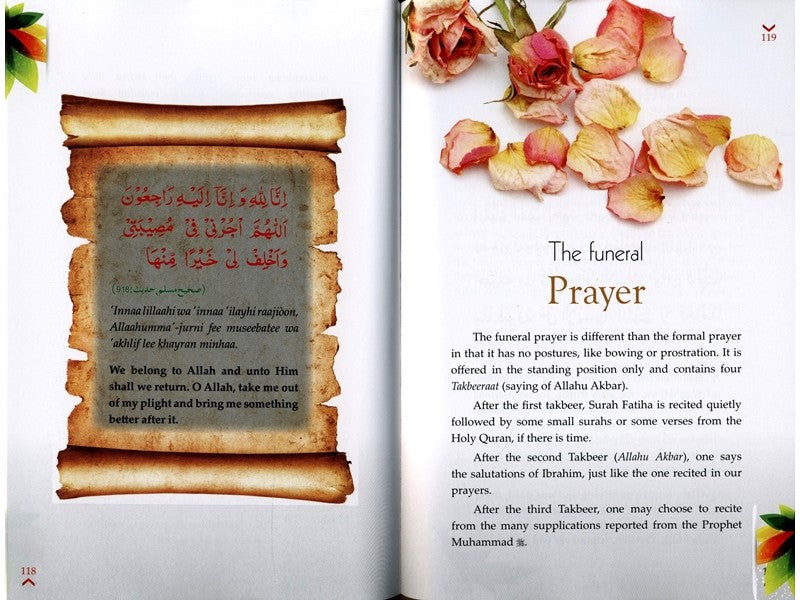 اِنَّا لِلّٰهِ وَ اِنَّآ اِلَيْهِ رَاجِعُوْنَ
اَللّٰهُمَّ اْجُرْنِيْ فِيْ مُصِيْبَتِيْ
وَاَخْلِفْ لِيْ خَيْرًا مِّنْهَا
(صحیح مسلم، حدیث: 918)
'Innaa lillaahi wa 'innaa 'ilayhi raajiòon,
Allaahumma'-jurni fee museebatee wa
'akhlif lee khayran minhaa.
We belong to Allah and unto Him
shall we return. O Allah, take me out
of my plight and bring me something
better after it.
118
119
The funeral
Prayer
The funeral prayer is different than the formal prayer
in that it has no postures, like bowing or prostration. It is
offered in the standing position only and contains four
Takbeeraat (saying of Allahu Akbar).
After the first takbeer, Surah Fatiha is recited quietly
followed by some small surahs or some verses from the
Holy Quran, if there is time.
After the second Takbeer (Allahu Akbar), one says
the salutations of Ibrahim, just like the one recited in our
prayers.
After the third Takbeer, one may choose to recite
from the many supplications reported from the Prophet
Muhammad ﷺ.